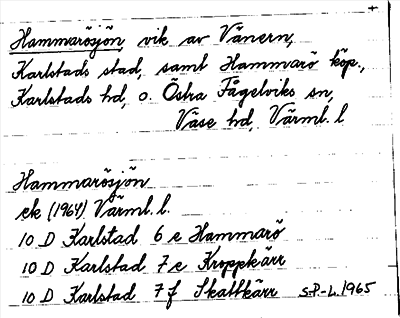 Hammarösjön, vik av Vänern,
Karlstads stad, samt Hammarö köp.,
Karlstads hd, o. Östra Fågelviks sn,
Väse hd, Värml. l
Hammarösjön
ek (1964) Värml. l.
10 D Karlstad 6 e Hammarö
10 D Karlstad 7 e Kroppkärr
10 D Karlstad 7 f Skattkärr S.P-L. 1965